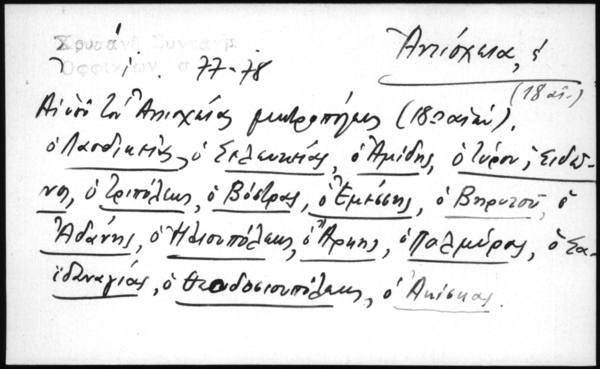 Χρυσάνθ Συνταγμ
Ὀφφικίων σ. 77-78
Ἀντιόχεια, ἡ
(18 αἰ.)
Αἱ ὑπὸ τὸν Ἀντιοχείας μητροπόλεις (18ος αἰών).
ὁ Λαοδικείας, ὁ Σελευκείας, ὁ Ἀμίδης, ὁ Τύρου, Σιδῶ-
νος, ὁ Τριπόλεως, ὁ Βόστρας, ὁ Ἐμέσσης, ὁ Βηρυτοῦ, ὁ
Ἀδάνης, ὁ Ἡλιουπόλεως, ὁ Ἄρκης, ὁ Παλμύρας, ὁ Σα-
ϊδαναγίας, ὁ Θεοδοσιουπόλεως, ὁ Ἀκίσκας.